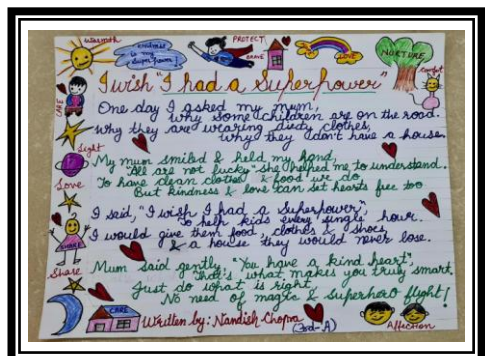 Warmth
kindness is my superpower
PROTECT
BRAVE
LOVE
NURTURE
Comfort
I wish "I had a Superpower"
CARE
One day I asked my mum,
Why some children are on the road.
Why they are wearing dirty clothes,
Why they don't have a house.
Light
My mum smiled & held my hand,
"All are not lucky" She helped me to understand.
To have clean clothes & food we do
But kindness & love can set hearts free too
Love
I said, "I wish I had a Superpower",
To help kids every single hour.
I would give them food, clothes & shoes,
& a house they would never lose.
SHARE
Share
Mum said gently "You have a kind heart",
That's what makes you truly smart.
Just do what is right,
No need of magic & Superhero flight!
CARE
Written by: Nandish Chopra
(3rd-A)
Affection